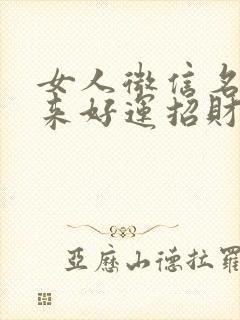 女人微信名
来好運招財
亞歷山德拉羅